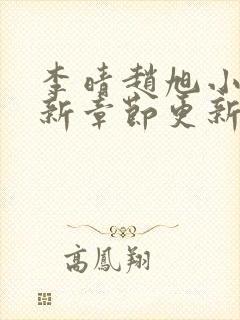 李晴趙旭小
新章節更新
高鳳翔